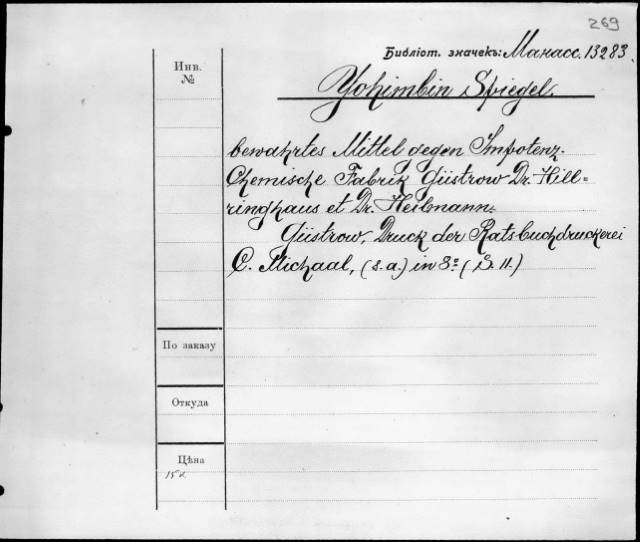 269
Библіот. значекъ: Манасс. 13283.
Инв.
№
Yohimbin Spiegel.
bewahrtes Mittel gegen Impotenz.
Chemische Fabrik Güstrow Dr. Hill=
ringhaus et Dr. Heilmann.
Güstrow, Druck der Ratsbuchdruckerei
C. Michaal, (s.a.) in 8º (S. 11.)
По заказу
Откуда
Цѣна
15 к